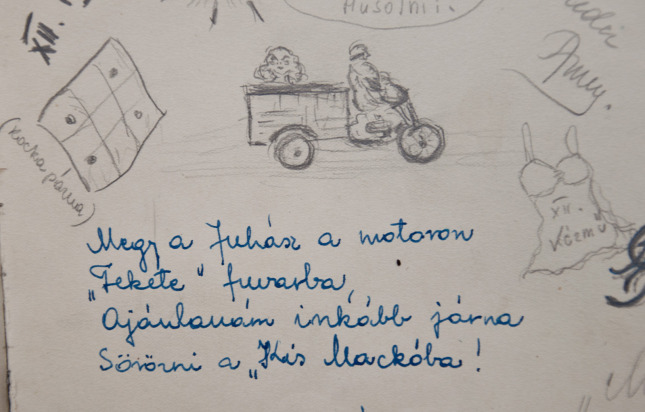 Husolni.
XII.
(Kocka párna)
XII.
Közmű
Megy a Juhász a motoron
„Fekete" fuvarba,
Ajánlanám inkább járna
Sörözni a „Kis Mackóba!